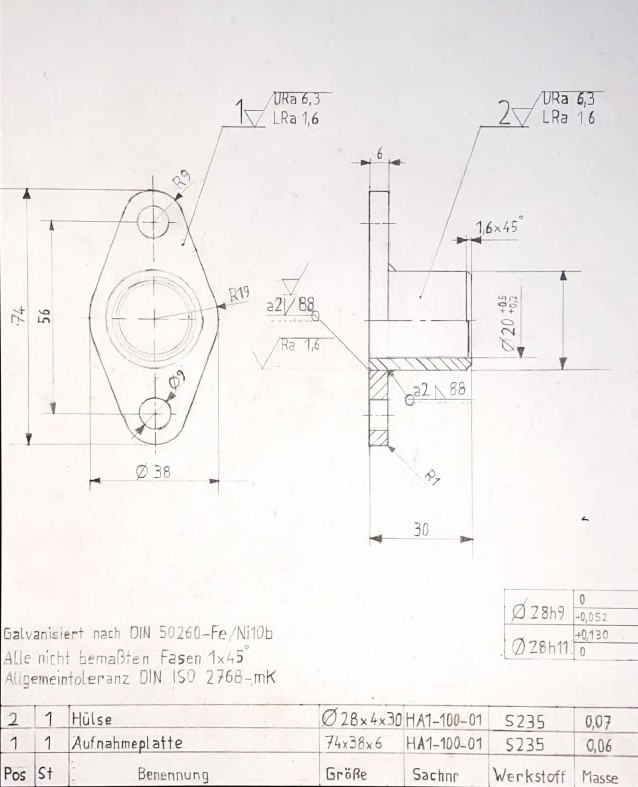 1 URa 6,3
LRa 1,6
2 URa 6,3
LRa 1,6
6
R9
1,6x45°
74
56
R19
a2 88
Ra 1,6
Ø20 +0,5
+0,2
Ø9
a2 88
Ø 38
R1
30
Ø28h9 0
-0,052
Ø28h11 +0,130
0
Galvanisiert nach DIN 50260-Fe/Ni10b
Alle nicht bemaßten Fasen 1x45°
Allgemeintoleranz DIN ISO 2768-mK
2 1 Hülse Ø28x4x30 HA1-100-01 S235 0,07
1 1 Aufnahmeplatte 74x38x6 HA1-100-01 S235 0,06
Pos St Benennung Größe Sachnr Werkstoff Masse